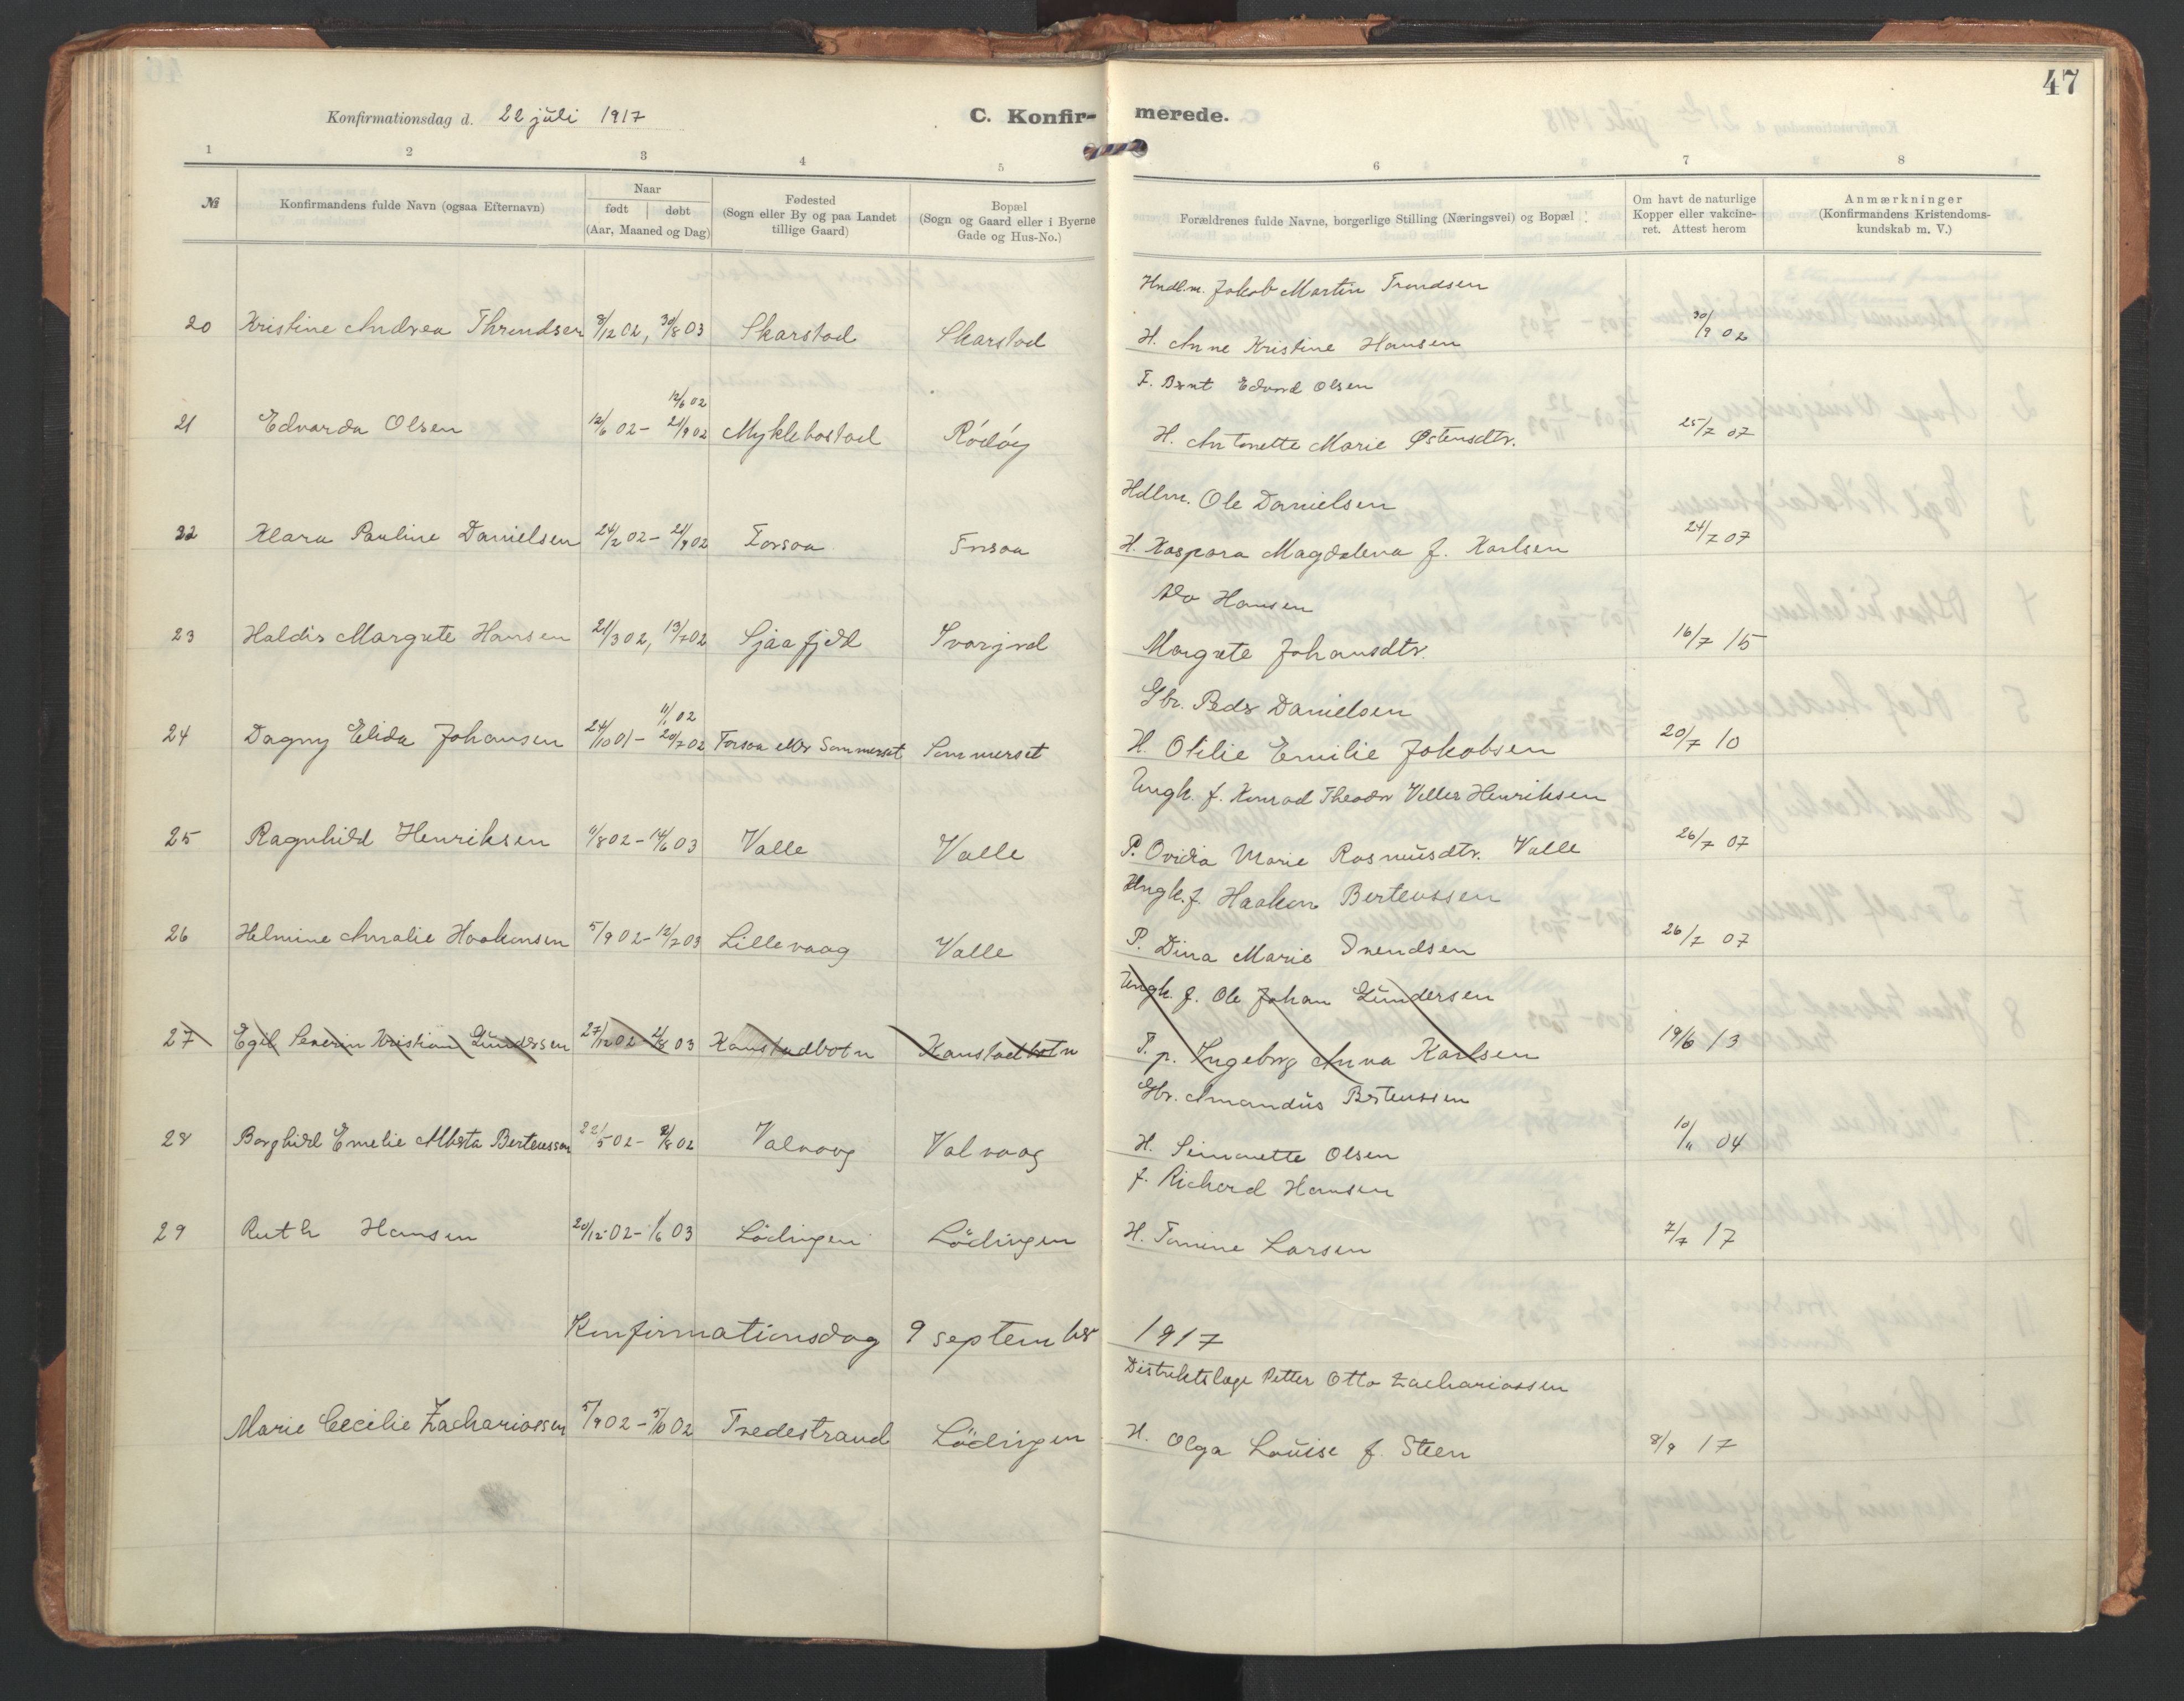 47
Konfirmationsdag d. 22 juli 1917
C. Konfir- merede.
1 2 3 4 5 6 7 8
№ Konfirmandens fulde Navn (ogsaa Efternavn) Naar født døbt (Aar, Maaned og Dag) Fødested (Sogn eller By og paa Landet tillige Gaard) Bopæl (Sogn og Gaard eller i Byerne Gade og Hus-No.) Forældrenes fulde Navne, borgerlige Stilling (Næringsvei) og Bopæl Om havt de naturlige Kopper eller vakcineret. Attest herom Anmærkninger (Konfirmandens Kristendomskundskab m. V.)
Hndlm. Jakob Martin Trondsen
20 Kristine Andrea Throndsen 8/12 02, 30/8 03 Skarstad Skarstad H. Anne Kristine Hansen 30/9 02
F. Bernt Edvard Olsen
12/6 02
21 Edvarda Olsen 12/6 02 - 21/9 02 Myklebostad Rödöy H. Antonette Marie Østensdtr. 25/7 07
Hdlm. Ole Danielsen
22 Klara Pauline Danielsen 24/2 02 - 21/9 02 Forsaa Forsaa H. Kaspara Magdalena f. Karlsen 24/7 07
Hansen
23 Haldis Margrete Hansen 21/3 02, 13/7 02 Sjaafjell Margrete Johansdtr. 16/7 15
Gbr. Peder Danielsen
11/1 02
24 Dagny Elida Johansen 24/10 01 - 20/7 02 Forsaa eller Sommerset Sommerset H. Otilie Emilie Jakobsen 20/7 10
Ungk. f. Konrad Theodor Veller Henriksen
25 Ragnhild Henriksen 11/8 02 - 14/6 03 Valle Valle P. Ovidia Marie Rasmusdtr. Valle 26/7 07
Ungk. f. Haakon Berteussen
26 Helmine Amalie Haakonsen 5/9 02 - 12/7 03 Lillevaag Valle P. Dina Marie Svendsen 26/7 07
Ungk. f. Ole Johan Gundersen
27 Egil Severin Kristian Gundersen 27/12 02 - 2/8 03 Kanstadbotn Kanstadbotn P. p. Ingeborg Anna Karlsen 19/6 13
Gbr. Amandus Berteussen
28 Borghild Emelie Alberta Berteussen 22/5 02 - 2/8 02 Valvaag Valvaag H. Simonette Olsen 10/11 04
f. Richard Hansen
29 Ruth Hansen 20/12 02 - 1/6 03 Lödingen Lödingen H. Tomine Larsen 7/7 17
Konfirmationsdag 9 september 1917
Distriktslæge Petter Otto Zachariassen
Marie Cecilie Zachariassen 5/9 02 - 5/10 02 Tvedestrand Lödingen H. Olga Louise f. Steen 8/9 17